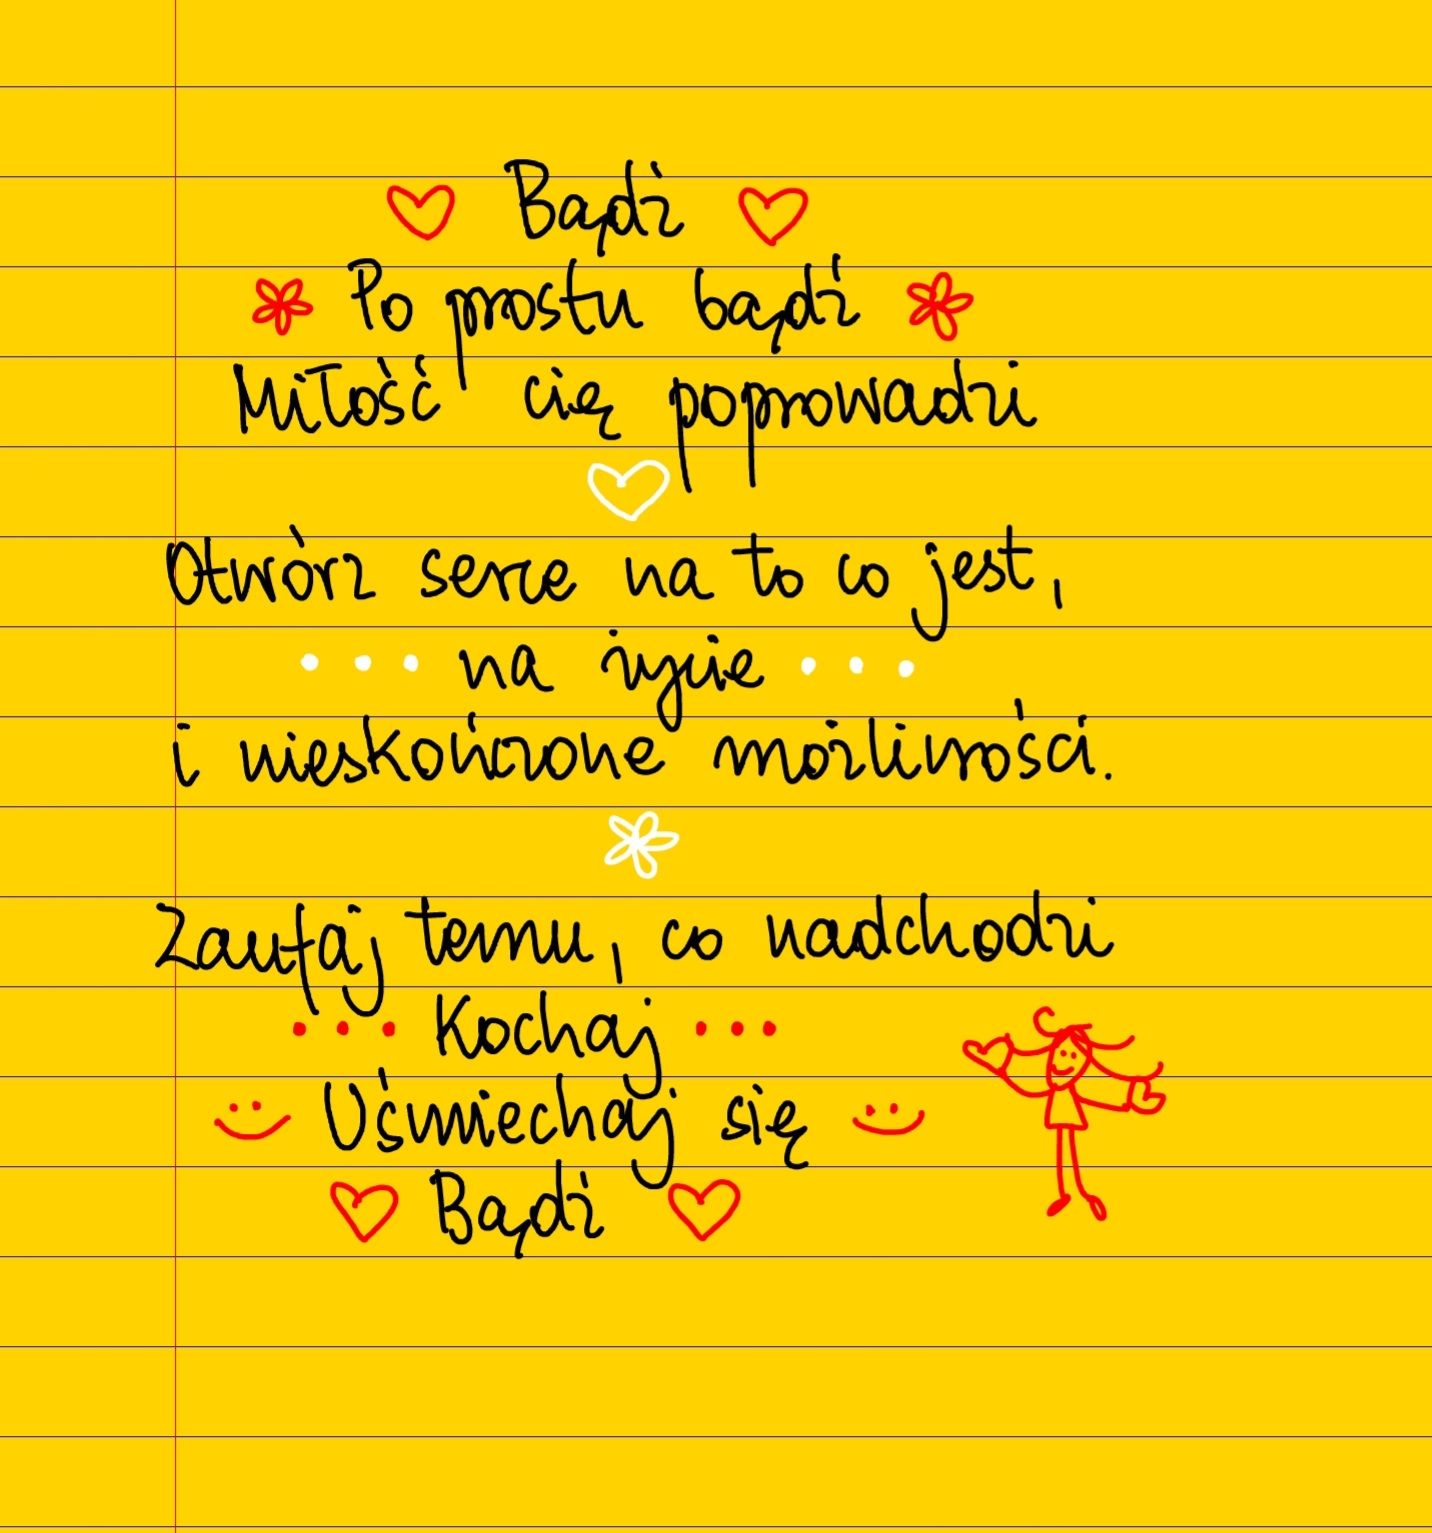 Bądź
Po prostu bądź
Miłość cię poprowadzi
Otwórz serce na to co jest,
... na życie ...
i nieskończone możliwości.
Zaufaj temu, co nadchodzi
... Kochaj ...
Uśmiechaj się
Bądź